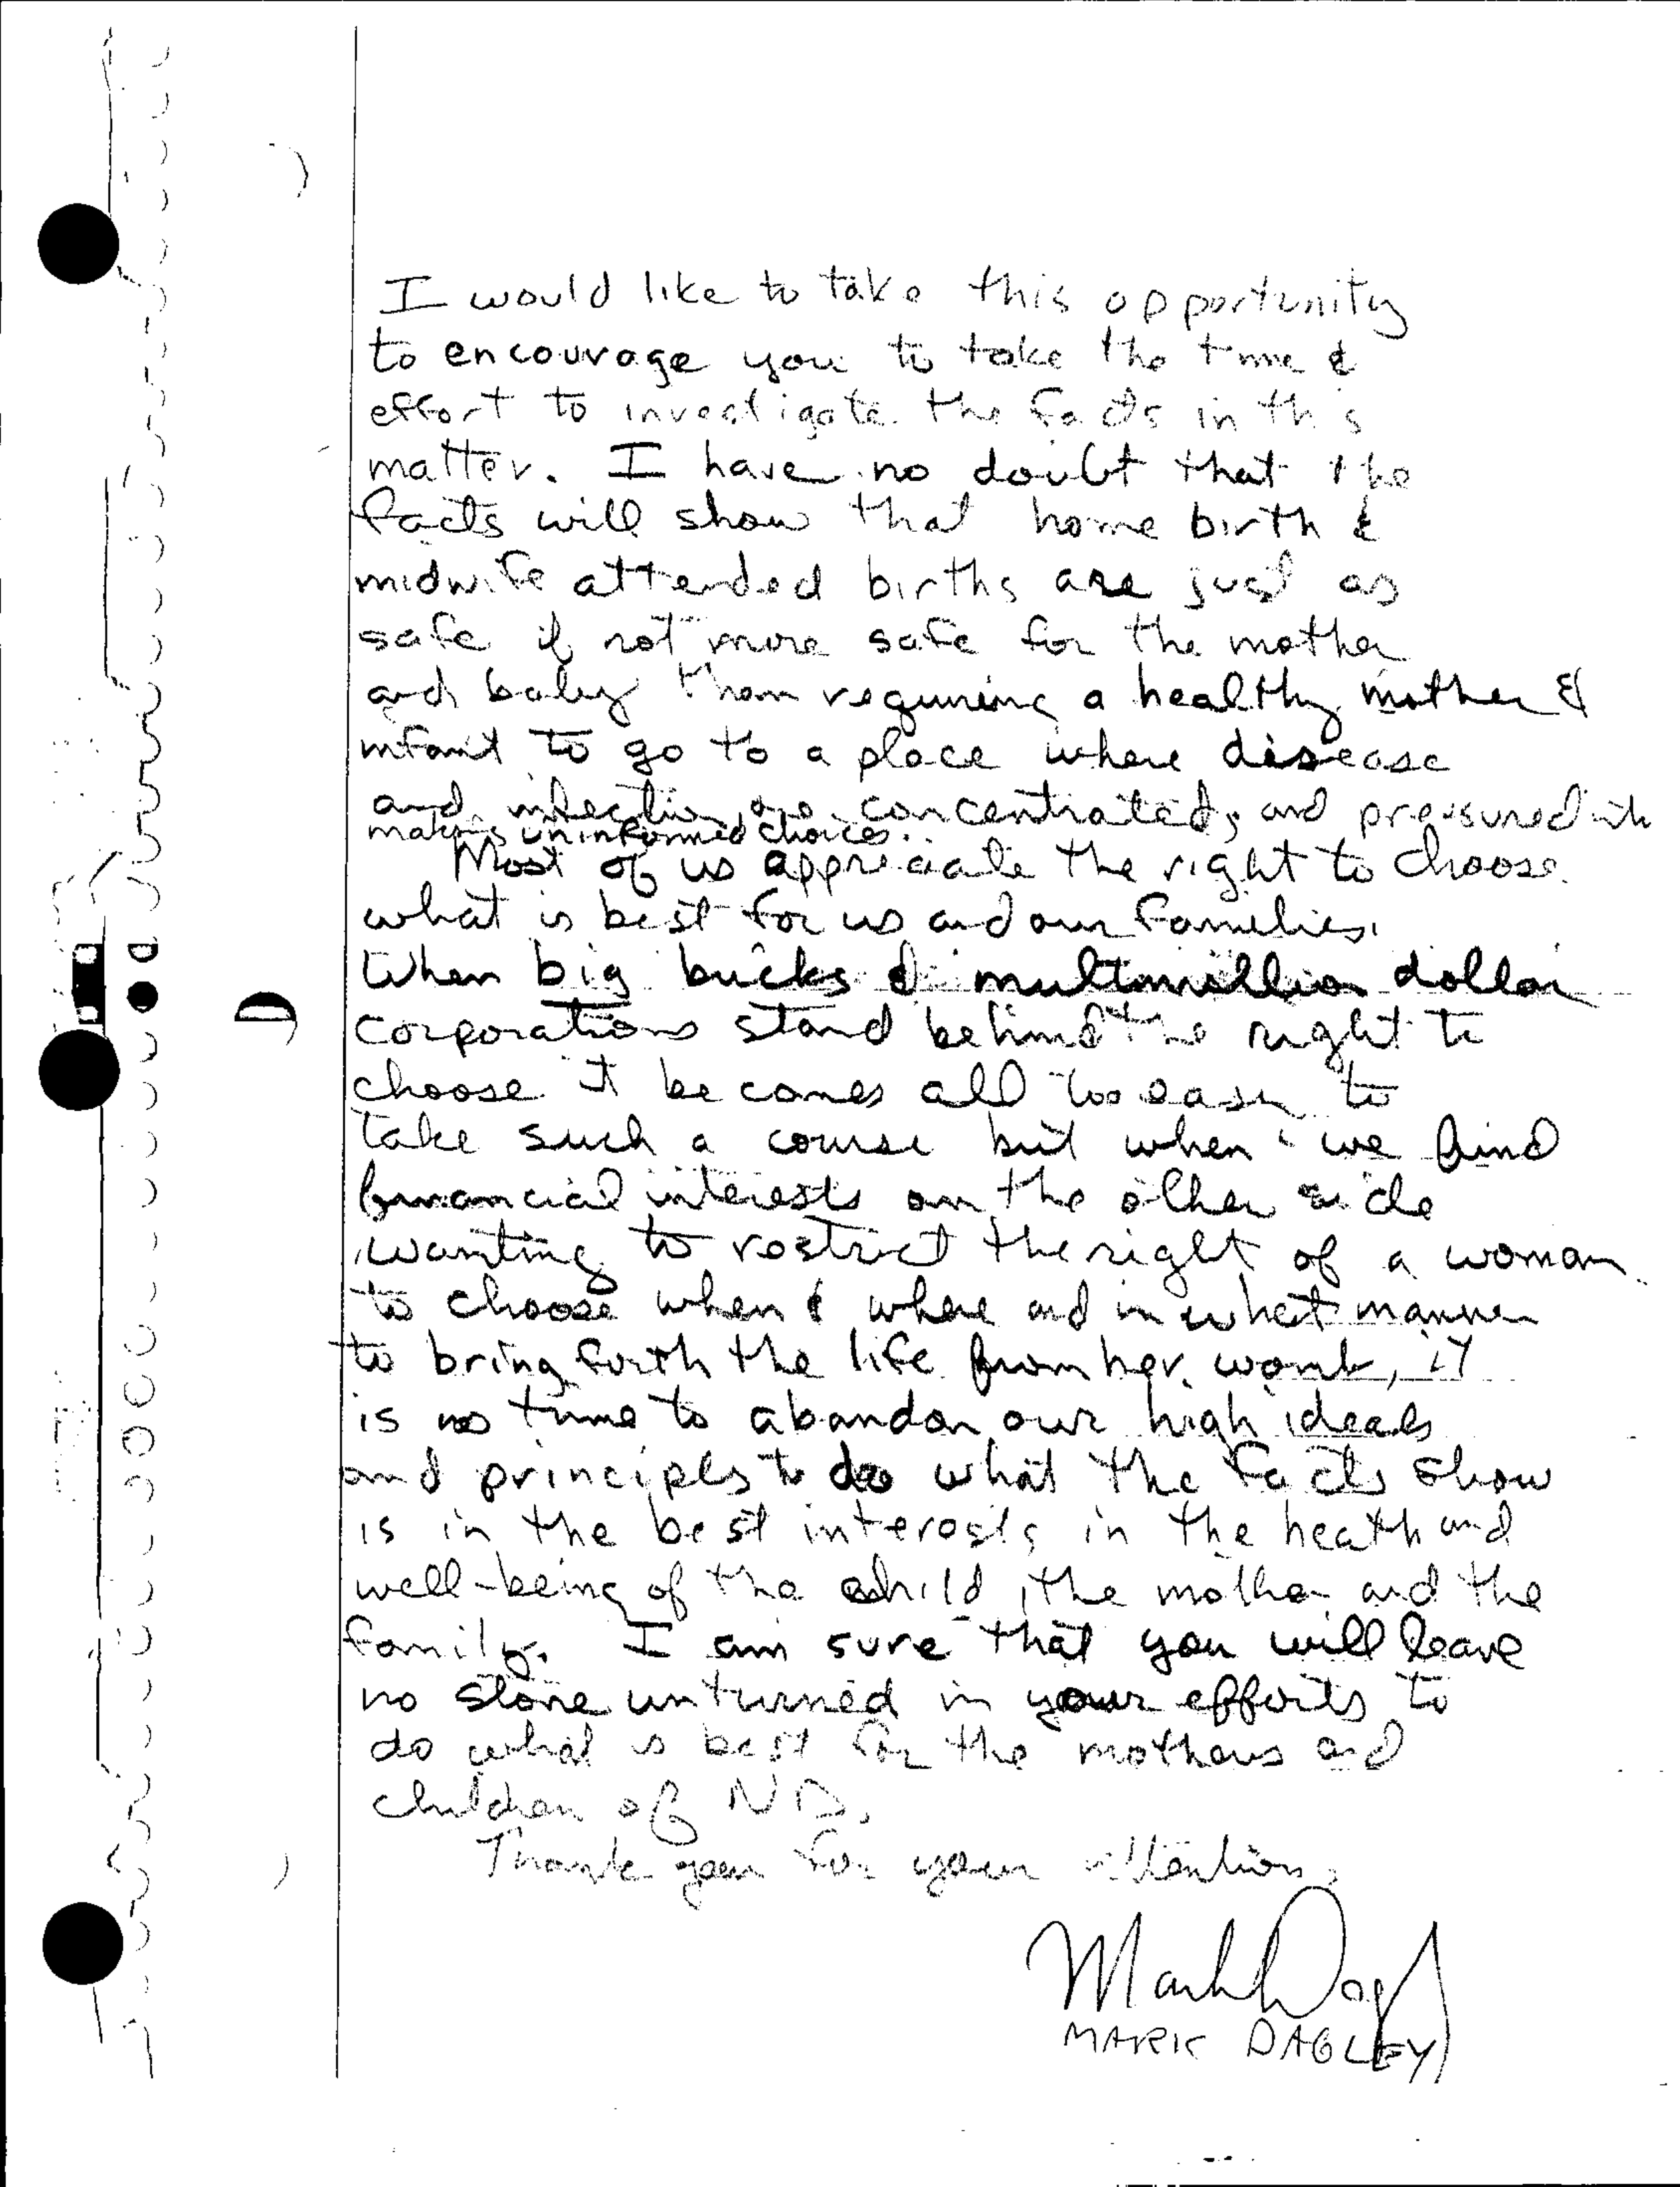 I would like to take this opportunity
to encourage you to take the time &
effort to investigate the facts in this
matter. I have no doubt that the
facts will show that home birth &
midwife attended births are just as
safe if not more safe for the mother
and baby than requiring a healthy mother &
infant to go to a place where disease
and infection are concentrated, and pressured into
making uninformed choices.
Most of us appreciate the right to choose
what is best for us and our families.
When big bucks & multimillion dollar
corporations stand behind the right to
choose it becomes all too easy to
take such a course but when we find
financial interests on the other side
wanting to restrict the right of a woman
to choose when & where and in what manner
to bring forth the life from her womb, it
is no time to abandon our high ideals
and principles to do what the facts show
is in the best interests in the heath and
well-being of the child, the mother and the
family. I am sure that you will leave
no stone unturned in your efforts to
do what is best for the mothers and
children of ND.
Thank you for your attention,
Mark Dagley
MARK DAGLEY